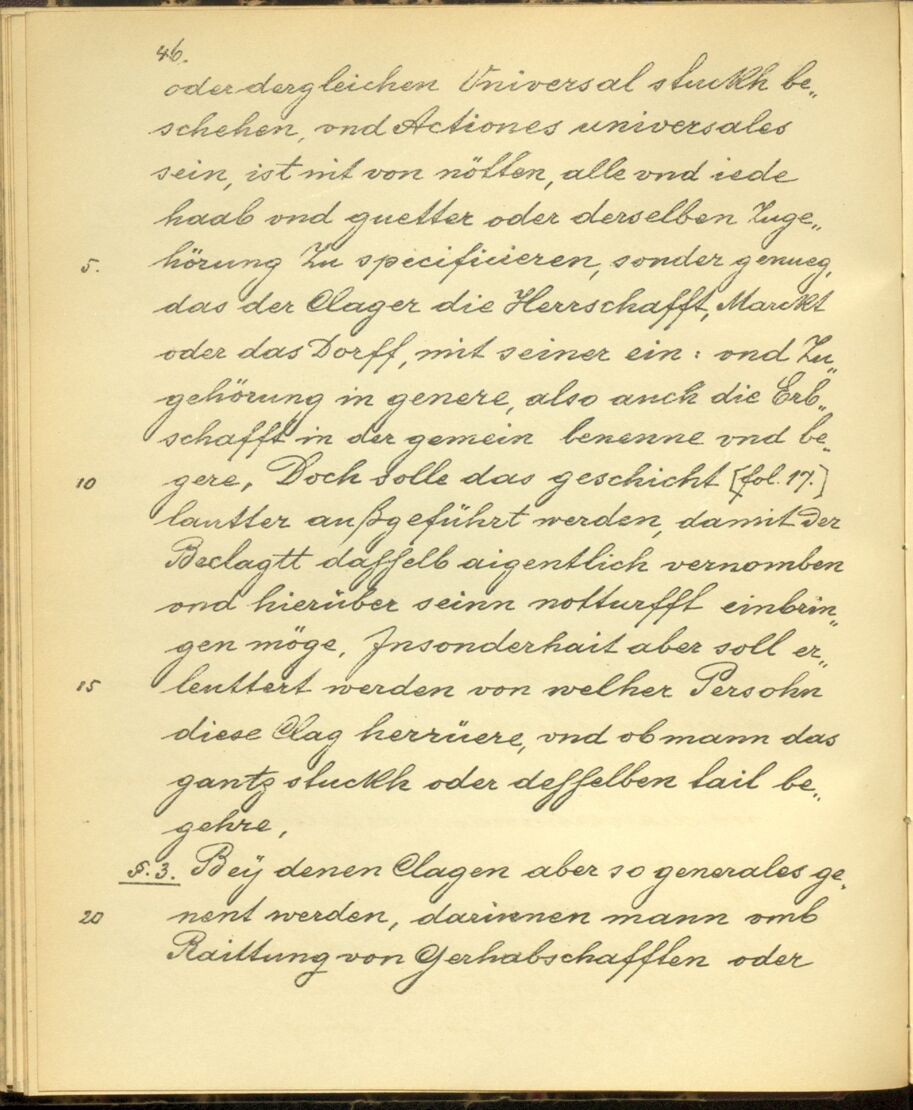 46.
oder dergleichen Vniversal stuckh be„
schehen, vnd Actiones universales
sein, ist nit von nötten, alle vnd iede
haab vnd guetter oder derselben Zuge„
5. hörung Zu specificieren, sonder genueg,
das der Clager die Herrschafft, Marckt
oder das Dorff, mit seiner ein: vnd Zu„
gehörung in genere, also auch die Erb„
schafft in der gemein benenne vnd be„
10 gere, Doch solle das geschicht [fol. 17.]
lautter außgeführt werden, damit der
Beclagtt dasselb aigentlich vernomben
vnd hierüber seinn notturfft einbrin„
gen möge, Insonderhait aber soll er„
15 leuttert werden von welher Persohn
diese Clag herrüere, vnd ob mann das
gantz stuckh oder desselben tail be„
gehre,
§. 3. Beÿ denen Clagen aber so generales ge„
20 nent werden, darinnen mann vmb
Raittung von Gerhabschafften oder